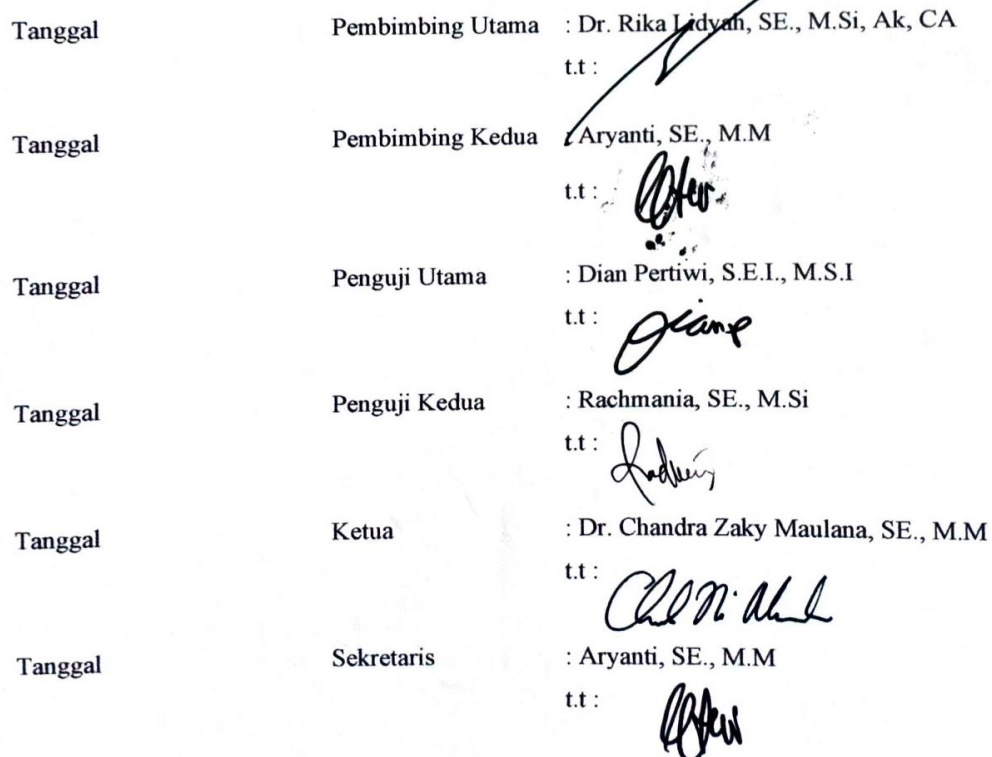 Tanggal Pembimbing Utama : Dr. Rika Lidyah, SE., M.Si, Ak, CA
t.t :
Tanggal Pembimbing Kedua : Aryanti, SE., M.M
t.t :
Tanggal Penguji Utama : Dian Pertiwi, S.E.I., M.S.I
t.t :
Tanggal Penguji Kedua : Rachmania, SE., M.Si
t.t :
Tanggal Ketua : Dr. Chandra Zaky Maulana, SE., M.M
t.t :
Tanggal Sekretaris : Aryanti, SE., M.M
t.t :